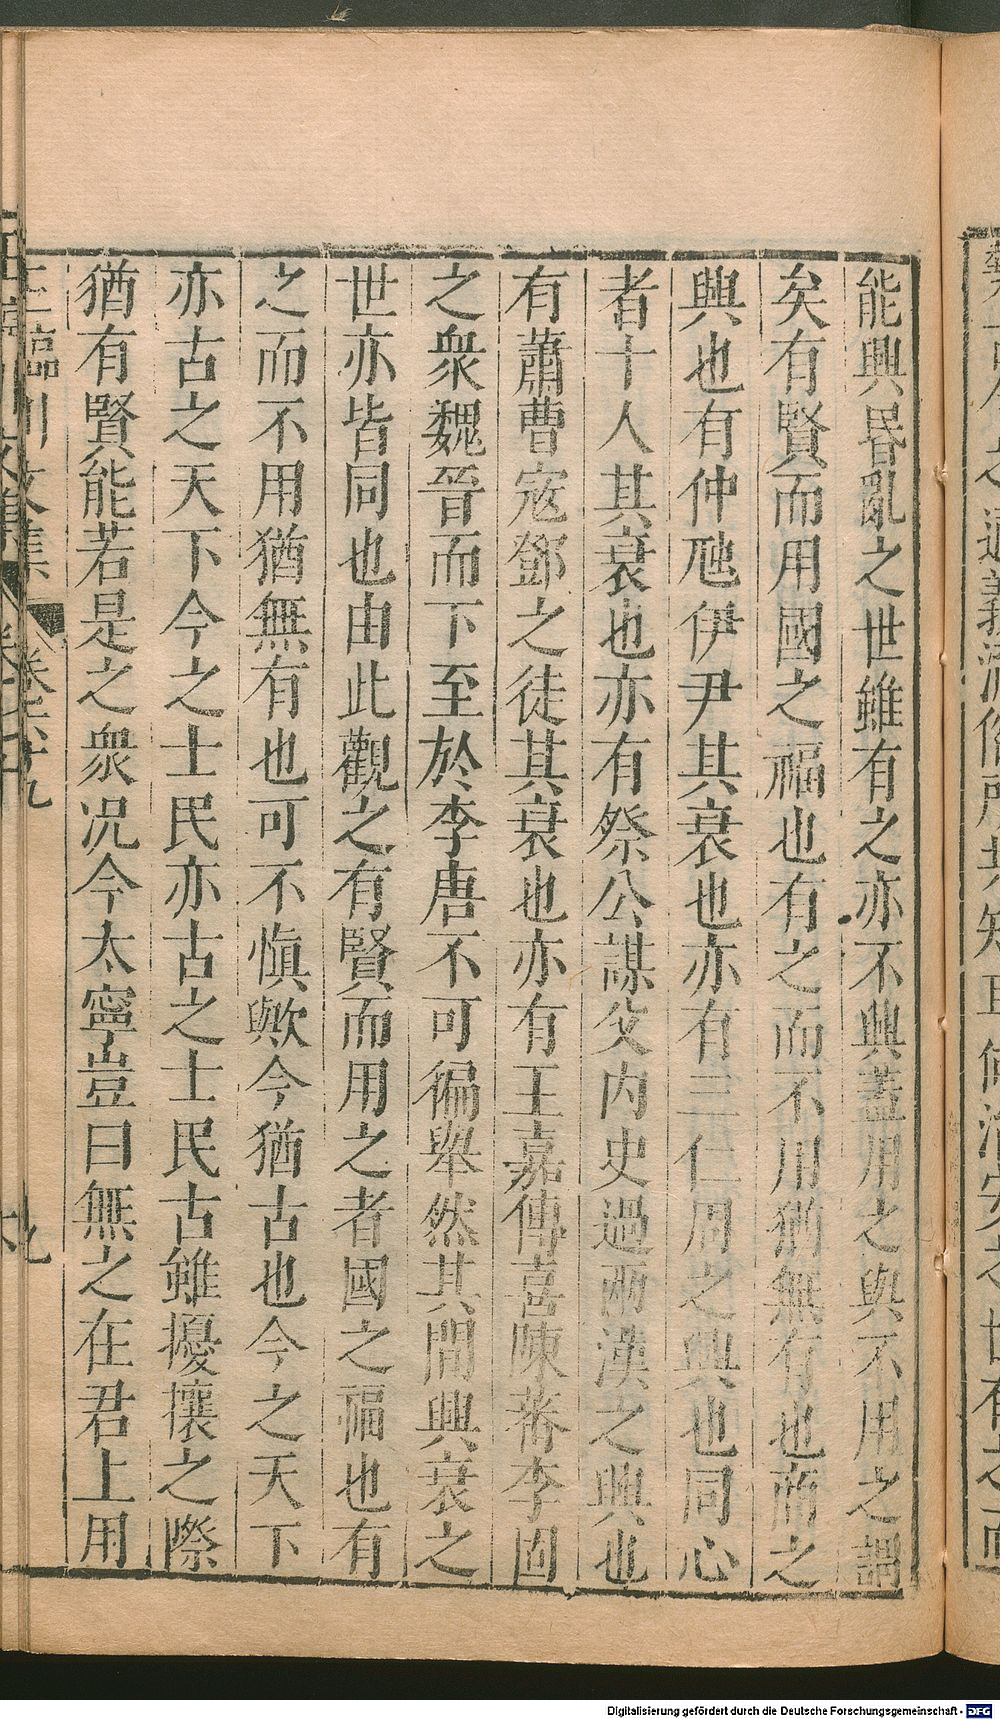 能興昬亂之世雖有之亦不興蓋用之與不用之謂
矣有賢而用國之福也有之而不用猶無有也商之
興也有仲虺伊尹其衰也亦有三仁周之興也同心
者十人其衰也亦有祭公謀父内史過兩漢之興也
有蕭曹寇鄧之徒其衰也亦有王嘉傅喜陳蕃李固
之衆魏晉而下至於李唐不可徧舉然其間興衰之
世亦皆同也由此觀之有賢而用之者國之福也有
之而不用猶無有也可不愼歟今猶古也今之天下
亦古之天下今之士民亦古之士民古雖擾攘之際
猶有賢能若是之衆况今太寧豈曰無之在君上用
王臨川文集 卷六十九 九
Digitalisierung gefördert durch die Deutsche Forschungsgemeinschaft - DFG